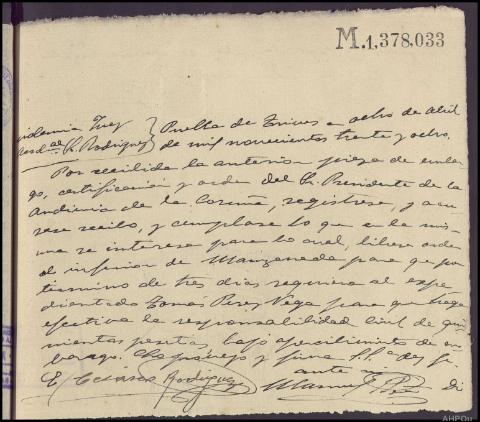 M.1,378.033
Providencia Juez
Sr. Rodriguez
Puebla de Trives a ocho de Abril
de mil novecientos treinta y ocho.
Por recibida la anterior pieza de embar-
go, certificación y orden del Sr. Presidente de la
Audiencia de la Coruña, registrese, y acu-
sese recibo, y cumplase lo que en la mis-
ma se interesa para lo cual, librese orden
al inferior de Manzaneda para que por
termino de tres dias requiera al expe-
dientado Tomás Perez Vega para que haga
efectiva la responsabilidad civil de qui-
nientas pesetas, bajo apercibimiento de em-
bargo. Lo proveyo y firma S.Sª doy fe.
Rodriguez
ante mi
Manuel
Di
AHPOu